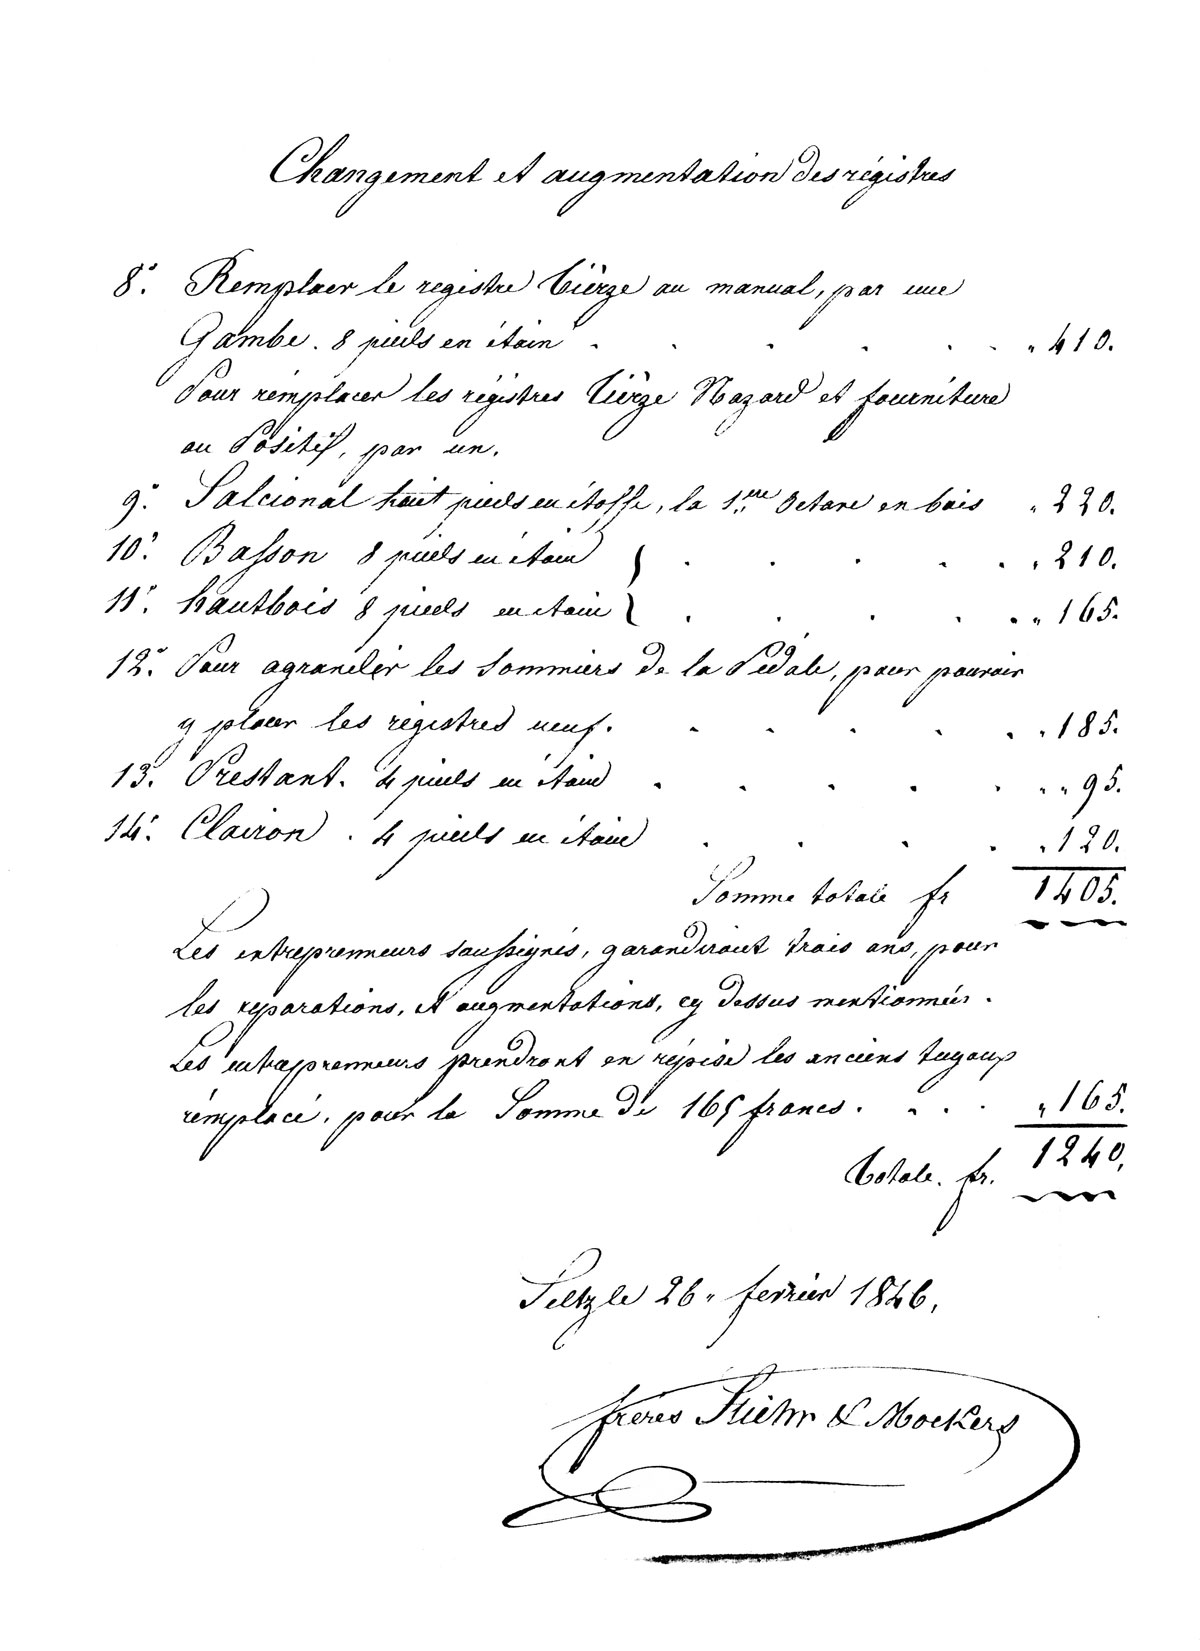 Changement et augmentation des régistres
8° Remplacer le registre Tièrze au manual, par une
Gambe. 8 pieds en étain . . . . . . " 410.
Pour remplacer les régistres Tièrze Nazard et fourniture
au Positif, par un.
9° Salcional huit pieds en étoffe, la 1ere Octave en bois " 220.
10° Basson 8 pieds en étain } . . . . . " 210.
11° hautbois 8 pieds en étain } . . . . . " 165.
12° Pour agrandir les Sommiérs de la Pédale, pour pouvoir
y placer les régistres neuf. . . . . . " 185.
13. Prestant. 4 pieds en étain . . . . . " " 95.
14° Clairon . 4 pieds en étain . . . . " 120.
Somme totale fr 1405.
Les entreprenneurs soussignés, garandiront trois ans, pour
les réparations, et augmentations, cy dessus mentionnées.
Les entreprenneurs prendront en répise les anciens tuyaup
remplacé, pour la Somme de 165 francs . . . . " 165.
Totale. fr. 1240.
Seltz le 26 " fevrier 1846.
frères Stiehr & Mockers